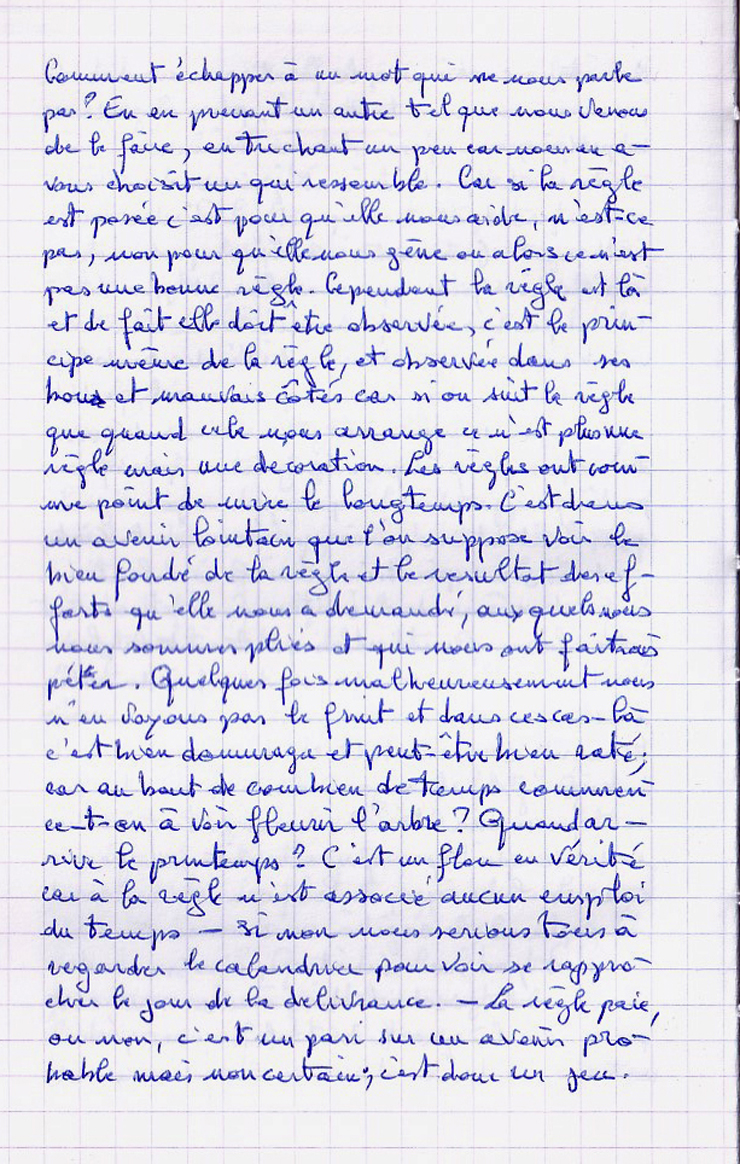 Comment échapper à un mot qui ne nous parle
pas ? En en prenant un autre tel que nous venons
de le faire, en trichant un peu car nous en a-
vons choisit un qui ressemble. Car si la règle
est posée c'est pour qu'elle nous aide, n'est-ce
pas, non pour qu'elle nous gêne ou alors ce n'est
pas une bonne règle. Cependant la règle est là
et de fait elle doit être observée, c'est le prin-
cipe même de la règle, et observée dans ses
bons et mauvais côtés car si on suit la règle
que quand cela nous arrange ce n'est plus une
règle mais une décoration. Les règles ont com-
me point de mire le longtemps. C'est dans
un avenir lointain que l'on suppose voir le
bien fondé de la règle et le résultat des ef-
forts qu'elle nous a demandé, auxquels nous
nous sommes pliés et qui nous ont fait
péter. Quelques fois malheureusement nous
n'en voyons pas le fruit et dans ces cas-là
c'est bien dommage et peut-être bien raté ;
car au bout de combien de temps commen
ce-t-on à voir fleurir l'arbre ? Quand ar-
rive le printemps ? C'est un flou en vérité
car à la règle n'est associé aucun emploi
du temps — si non nous serions tous à
regarder le calendrier pour voir se rappro-
cher le jour de la délivrance. — La règle paie,
ou non, c'est un pari sur un avenir pro-
bable mais non certain ; c'est donc un jeu.